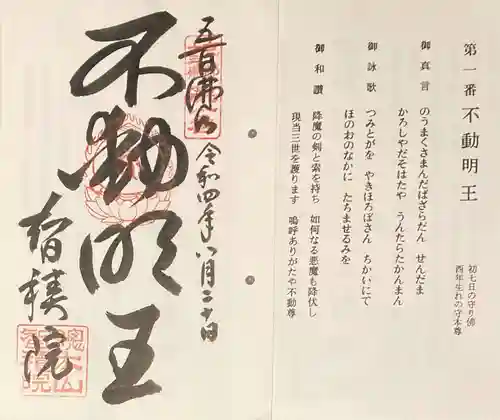 第一番 不動明王
初七日の守り佛
酉年生れの守本尊
御真言 のうまくさまんだばざらだん せんだま
かろしやだそはたや うんたらたかんまん
御詠歌 つみとがを やきほろぼさん ちかいにて
ほのおのなかに たちませるみを
御和讃 降魔の剣と索を持ち 如何なる悪魔も降伏し
現当三世を護ります 嗚呼ありがたや不動尊
五百佛山
令和四年八月二十日
不動明王
智積院